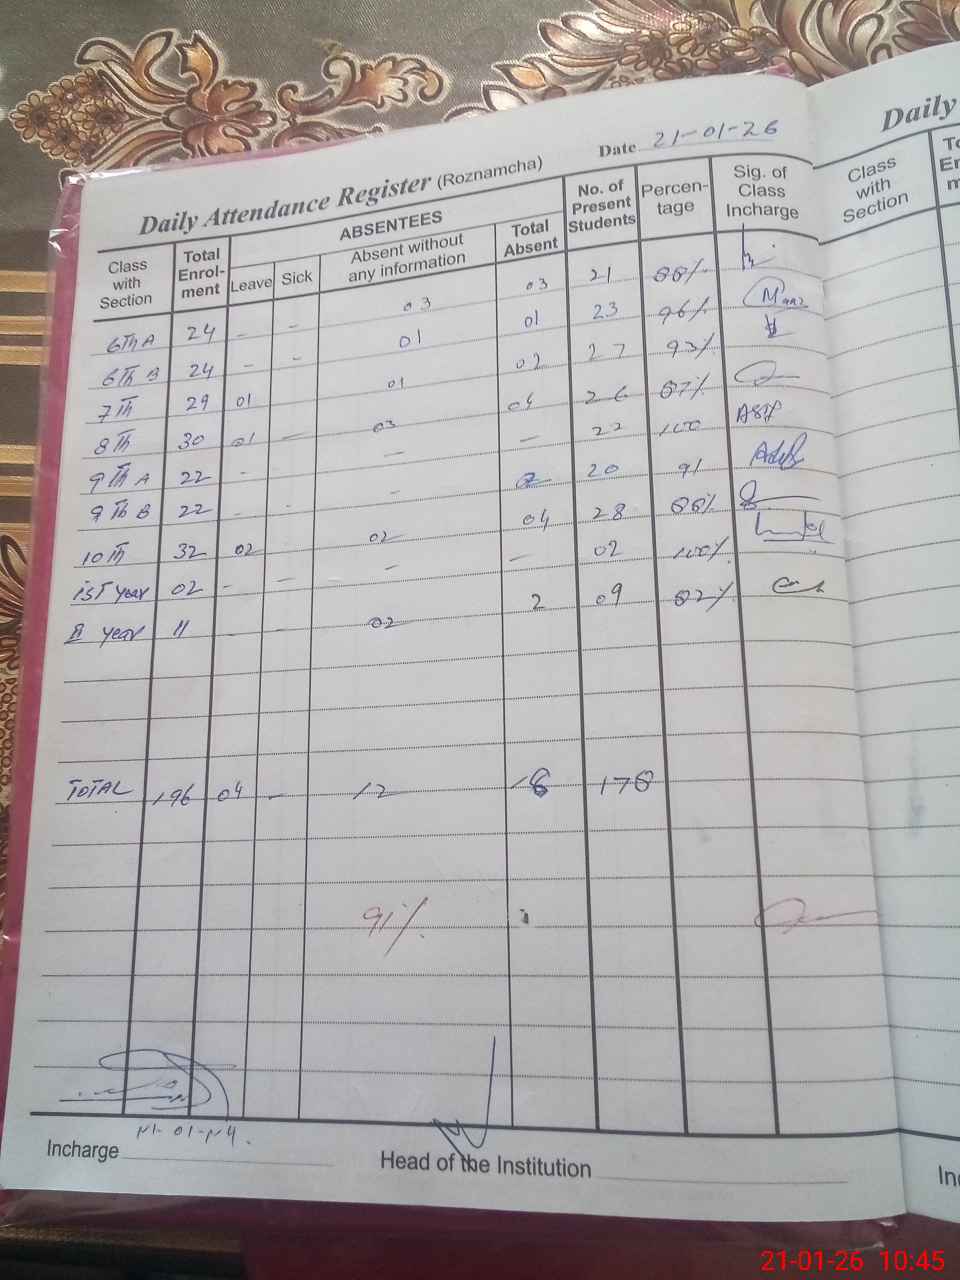 Daily Attendance Register (Roznamcha) Date 21-01-26
Class with Section Total Enrol-ment ABSENTEES Leave Sick Absent without any information Total Absent No. of Present Students Percen-tage Sig. of Class Incharge
6Th A 24 - - 03 03 21 88%
6Th B 24 - - 01 01 23 96%
7Th 29 01 01 02 27 93%
8Th 30 01 - 03 04 26 87%
9Th A 22 - - - 22 100
9Th B 22 - - - 2 20 91
10Th 32 02 02 04 28 88%
1ST year 02 - - - - 02 100%
II year 11 - - 02 2 09 82%
TOTAL 196 04 - 12 18 178
91%
21-01-26
Incharge
Head of the Institution
Daily
Class with Section
21-01-26 10:45